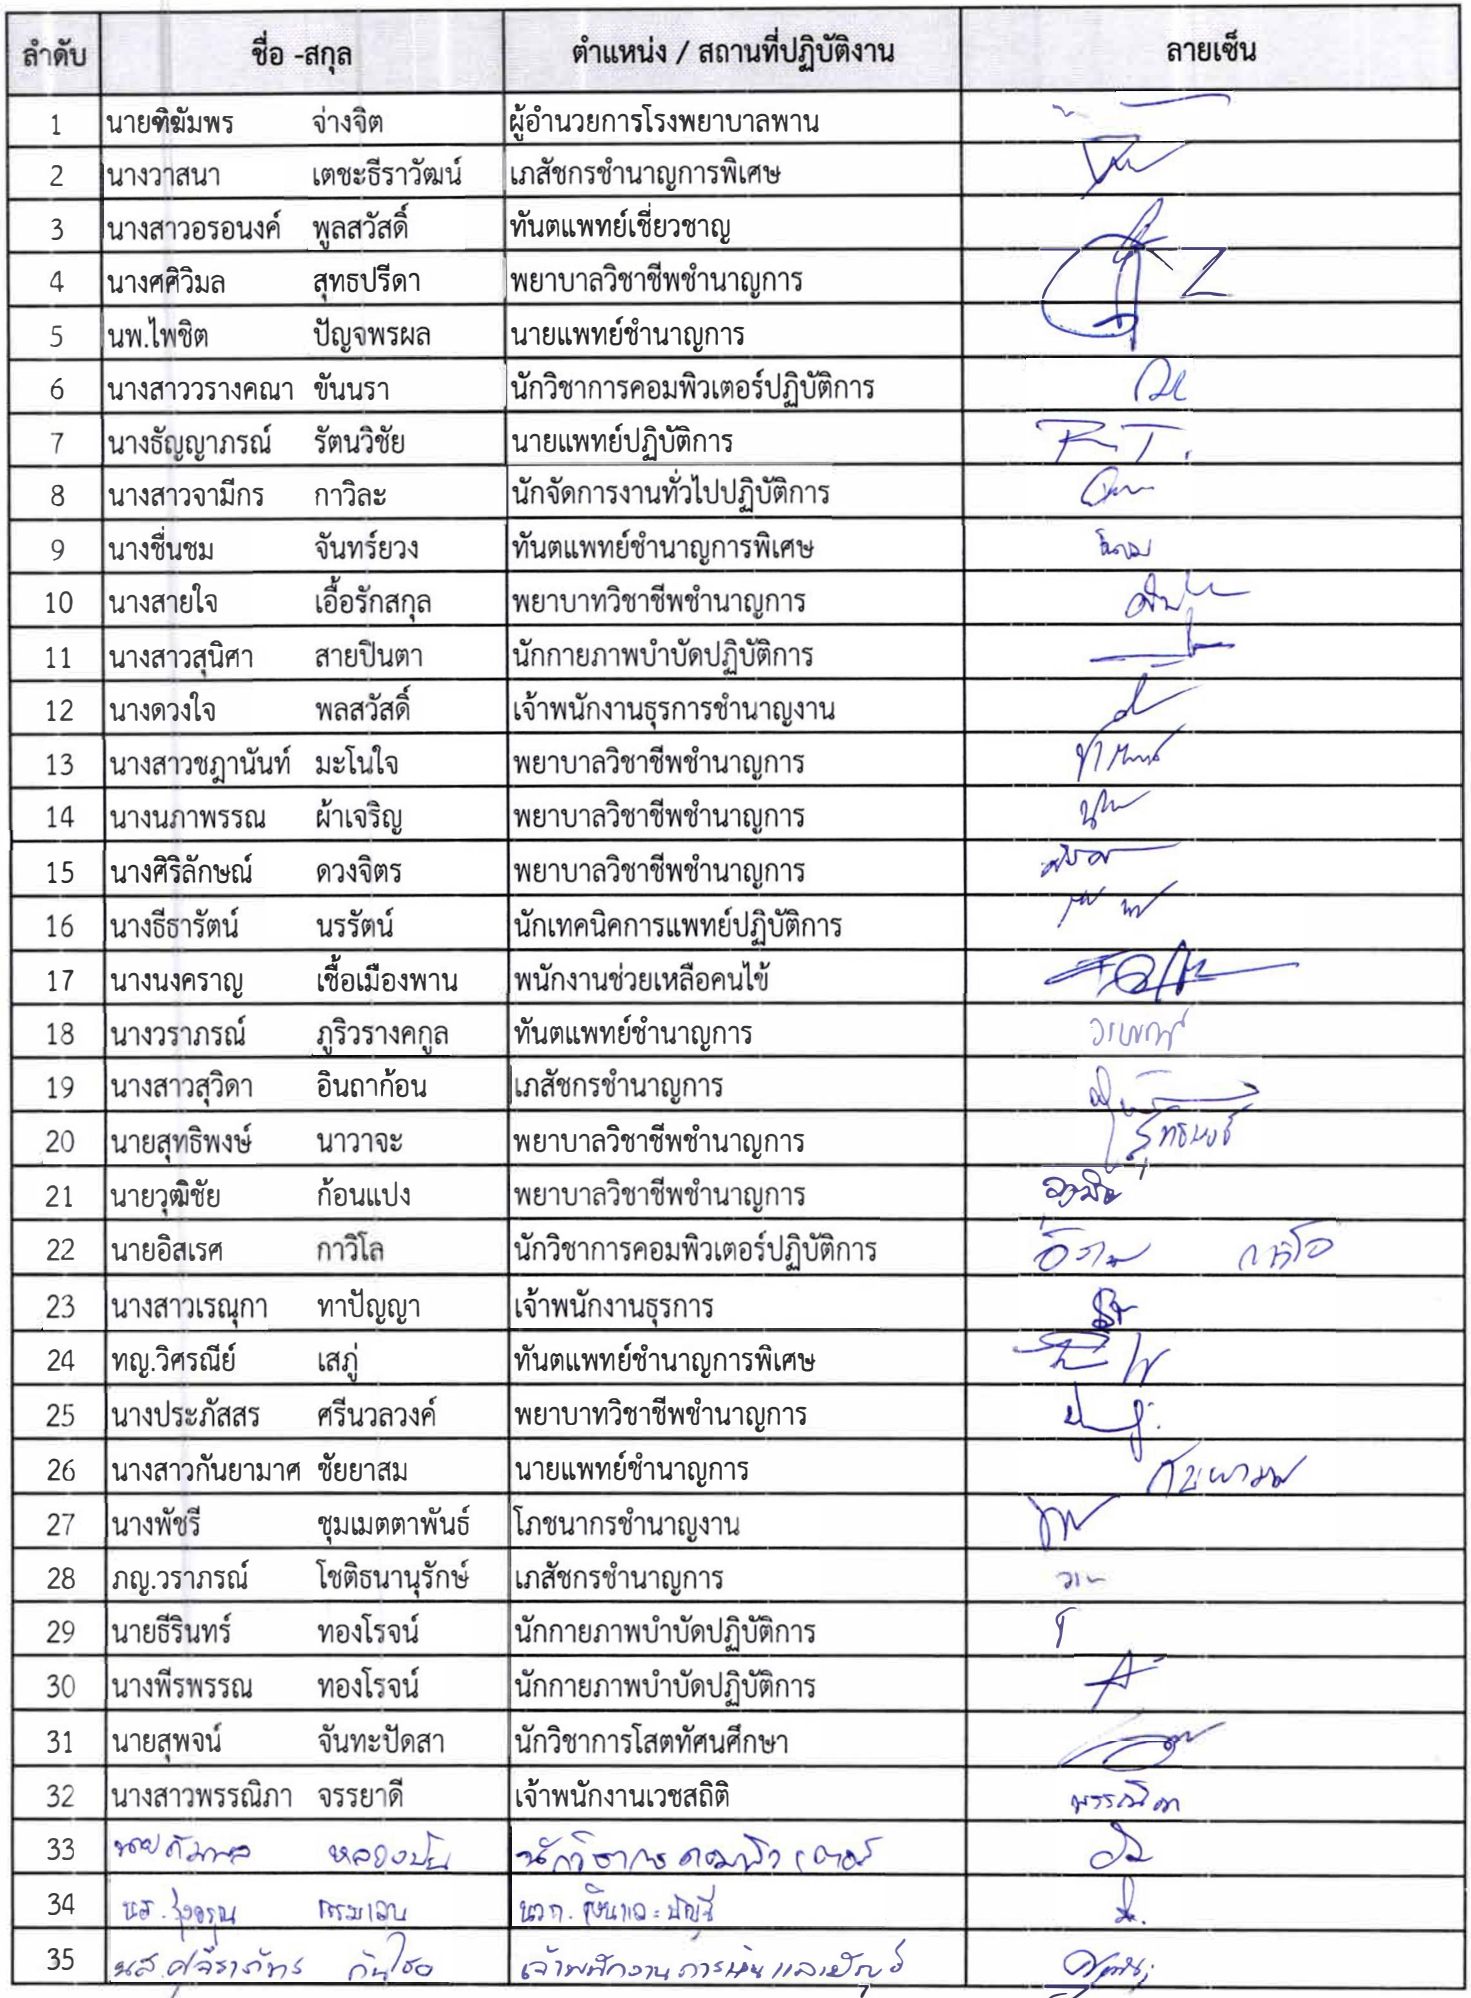 ลำดับ ชื่อ -สกุล ตำแหน่ง / สถานที่ปฏิบัติงาน ลายเซ็น
1 นายทิฆัมพร จ่างจิต ผู้อำนวยการโรงพยาบาลพาน
2 นางวาสนา เตชะธีราวัฒน์ เภสัชกรชำนาญการพิเศษ
3 นางสาวอรอนงค์ พูลสวัสดิ์ ทันตแพทย์เชี่ยวชาญ
4 นางศศิวิมล สุทธปรีดา พยาบาลวิชาชีพชำนาญการ
5 นพ.ไพชิต ปัญจพรผล นายแพทย์ชำนาญการ
6 นางสาววรางคณา ขันนรา นักวิชาการคอมพิวเตอร์ปฏิบัติการ
7 นางธัญญาภรณ์ รัตนวิชัย นายแพทย์ปฏิบัติการ R.T.
8 นางสาวจามีกร กาวิละ นักจัดการงานทั่วไปปฏิบัติการ
9 นางชื่นชม จันทร์ยวง ทันตแพทย์ชำนาญการพิเศษ
10 นางสายใจ เอื้อรักสกุล พยาบาทวิชาชีพชำนาญการ
11 นางสาวสุนิศา สายปินตา นักกายภาพบำบัดปฏิบัติการ
12 นางดวงใจ พลสวัสดิ์ เจ้าพนักงานธุรการชำนาญงาน
13 นางสาวชฎานันท์ มะโนใจ พยาบาลวิชาชีพชำนาญการ
14 นางนภาพรรณ ผ้าเจริญ พยาบาลวิชาชีพชำนาญการ
15 นางศิริลักษณ์ ดวงจิตร พยาบาลวิชาชีพชำนาญการ
16 นางธีธารัตน์ นรรัตน์ นักเทคนิคการแพทย์ปฏิบัติการ
17 นางนงคราญ เชื้อเมืองพาน พนักงานช่วยเหลือคนไข้
18 นางวราภรณ์ ภูริวรางคกูล ทันตแพทย์ชำนาญการ วราภรณ์
19 นางสาวสุวิดา อินถาก้อน เภสัชกรชำนาญการ
20 นายสุทธิพงษ์ นาวาจะ พยาบาลวิชาชีพชำนาญการ สุทธิพงษ์
21 นายวุฒิชัย ก้อนแปง พยาบาลวิชาชีพชำนาญการ
22 นายอิสเรศ กาวิโล นักวิชาการคอมพิวเตอร์ปฏิบัติการ
23 นางสาวเรณุกา ทาปัญญา เจ้าพนักงานธุรการ
24 ทญ.วิศรณีย์ เสภู่ ทันตแพทย์ชำนาญการพิเศษ
25 นางประภัสสร ศรีนวลวงค์ พยาบาทวิชาชีพชำนาญการ
26 นางสาวกันยามาศ ชัยยาสม นายแพทย์ชำนาญการ กันยามาศ
27 นางพัชรี ชุมเมตตาพันธ์ โภชนากรชำนาญงาน
28 ภญ.วราภรณ์ โชติธนานุรักษ์ เภสัชกรชำนาญการ
29 นายธีรินทร์ ทองโรจน์ นักกายภาพบำบัดปฏิบัติการ
30 นางพีรพรรณ ทองโรจน์ นักกายภาพบำบัดปฏิบัติการ
31 นายสุพจน์ จันทะปัดสา นักวิชาการโสตทัศนศึกษา
32 นางสาวพรรณิภา จรรยาดี เจ้าพนักงานเวชสถิติ พรรณิภา
33 นักวิชาการคอมพิวเตอร์
34 นส.รุ่งอรุณ นวก.เงินและบัญชี
35 นส. เจ้าพนักงานการเงินและบัญชี